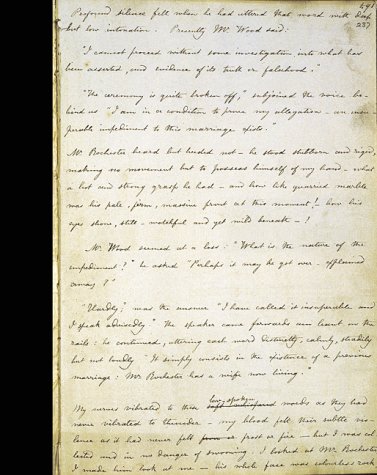 291
237
Profound silence fell when he had uttered that word with deep
but low intonation. Presently Mr. Wood said:
"I cannot proceed without some investigation into what has
been asserted, and evidence of its truth or falsehood."
"The ceremony is quite broken off," subjoined the voice be-
hind us "I am in a condition to prove my allegation - an insu-
perable impediment to this marriage exists."
Mr. Rochester heard but heeded not - he stood stubborn and rigid,
making no movement but to possess himself of my hand - what
a hot and strong grasp he had - and how like quarried marble
was his pale, firm, massive front at this moment! how his
eyes shone, still - watchful and yet wild beneath - !
Mr. Wood seemed at a loss: "What is the nature of the
impediment?" he asked "Perhaps it may be got over - explained
away?"
"Hardly," was the answer "I have called it insuperable and
I speak advisedly." The speaker came forwards and leant on the
rails: he continued, uttering each word distinctly, calmly, steadily
but not loudly "It simply consists in the existence of a previous
marriage: Mr Rochester has a wife now living."
low-spoken
My nerves vibrated to those soft-whispered words as they had
never vibrated to thunder - my blood felt their subtle vio-
lence as it had never felt frost or fire - but I was col-
lected and in no danger of swooning. I looked at Mr. Rochester
I made him look at me - his whole face was colourless rock